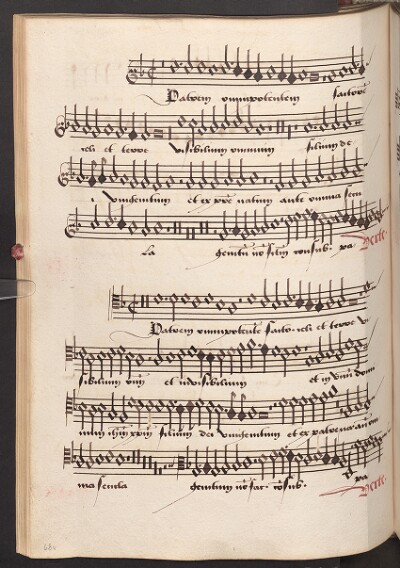 Patrem omnipotentem factorē
celi et terre visibilium omnium filium de
i vnigenitum et ex pr̄e natum ante omnia secu
la genitū nō fc̄m consub. pa verte.
Patrem omnipotetē facto. celi et terre vi
sibilium om̄ et inuisibilium et in vnū domi
num ih̄m xp̄m filium dei vnigenitum et ex patre
ma secula genitum nō fac. cōsub. pa
verte.